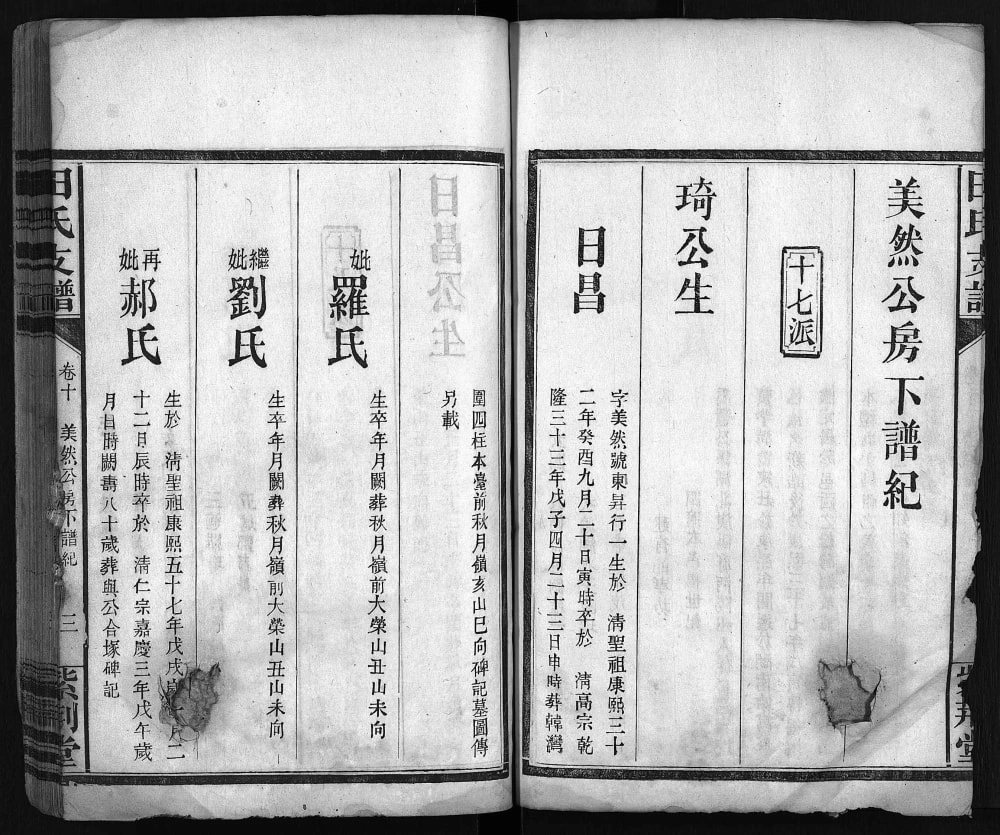 美然公房下譜紀
十七派
琦公生
日昌
字美然號東昇行一生於 清聖祖康熙三十
二年癸酉九月二十日寅時卒於 清高宗乾
隆三十三年戊子四月二十三日申時葬韓灣
圍四柱本臺前秋月嶺亥山巳向碑記墓圖傳
另載
妣羅氏
生卒年月闕葬秋月嶺前大榮山丑山未向
繼妣劉氏
生卒年月闕葬秋月嶺前大榮山丑山未向
再妣郝氏
生於 清聖祖康熙五十七年戊戌歲 月二
十二日辰時卒於 清仁宗嘉慶三年戊午歲
月日時闕壽八十歲葬與公合塚碑記
田氏支譜
卷十 美然公房下譜紀
三
紫荊堂